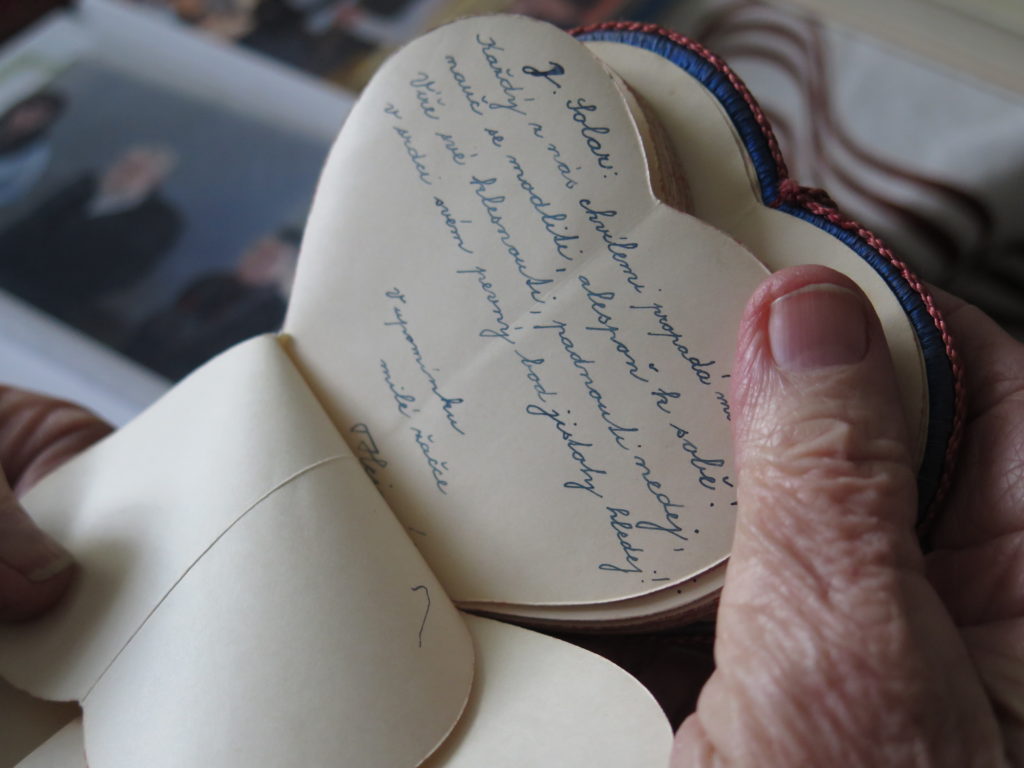 J. Solar:
Každý z nás chvílemi propadá
nauč se modliti, alespoň k sobě.
Víře své klesnouti, padnouti nedej,
v srdci svém pevný bod jistoty hledej!
v upomínku
milé žačce